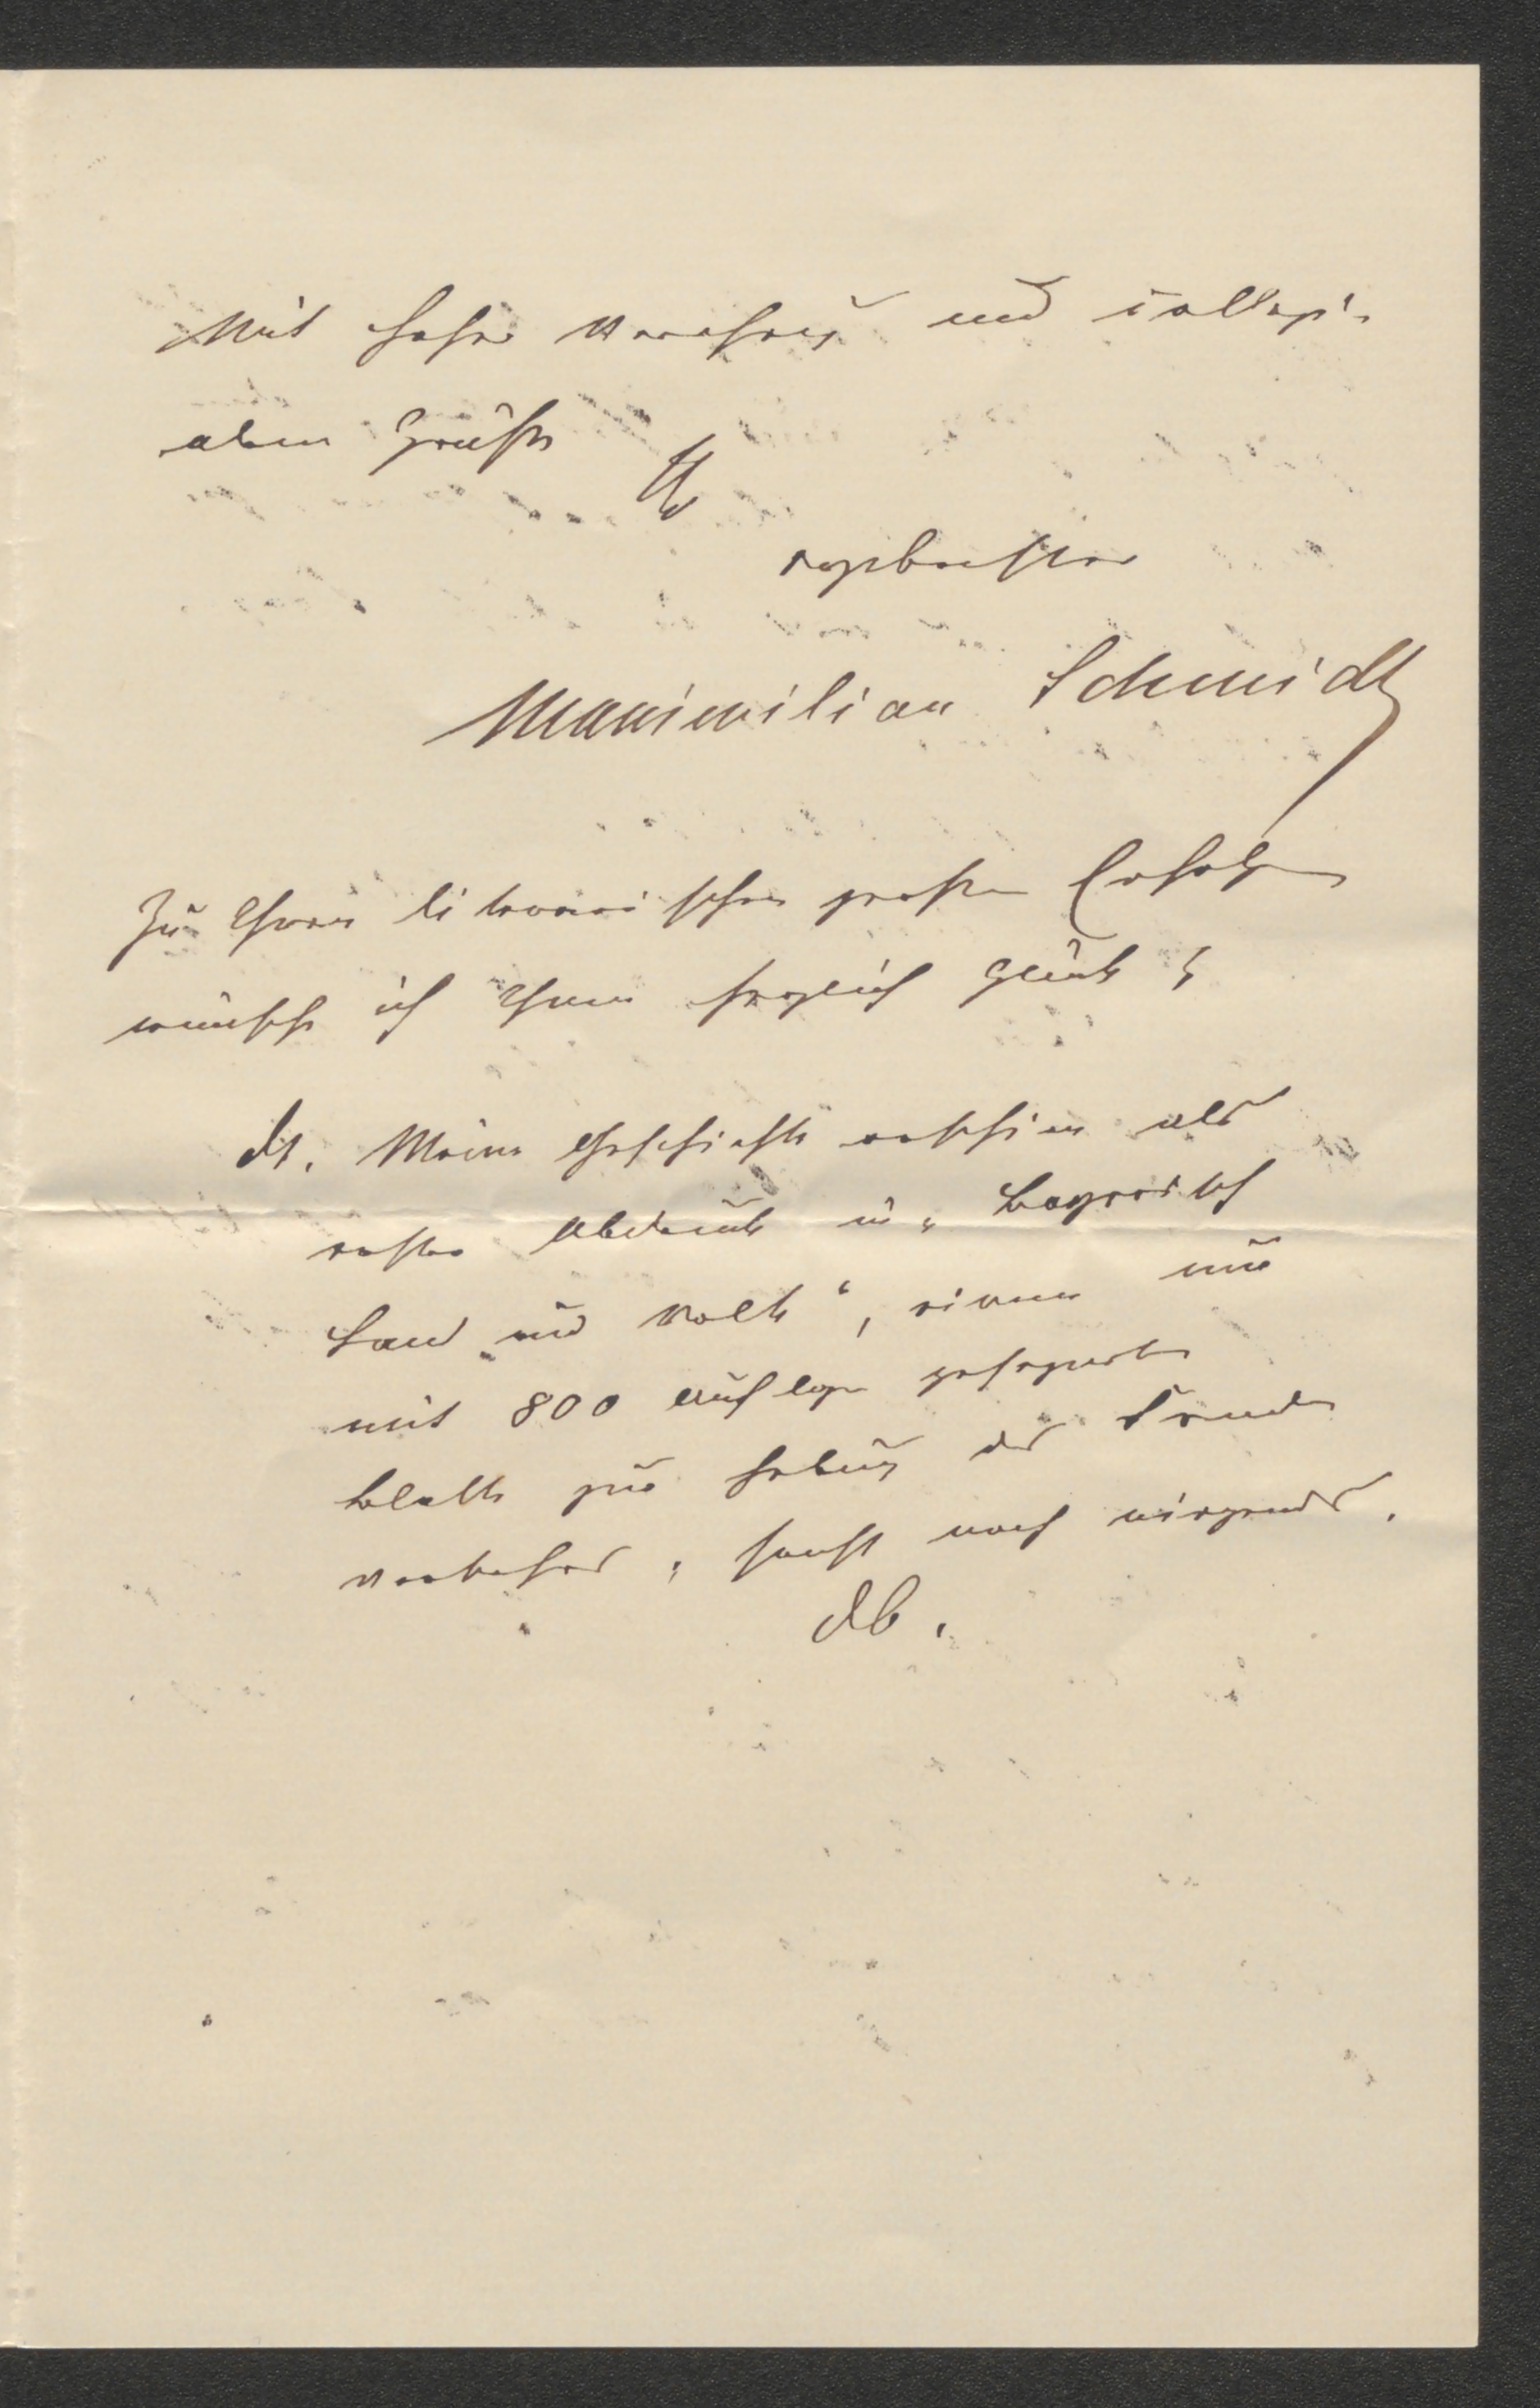 Mit hoher Verehrung und collegi-
alem Gruße
Ihr
ergebenster
Maximilian Schmidt
Zu Ihren literarischen großen Erfolgen
wünsche ich Ihnen herzlich Glück!
Meine Geschichte erschien als
erster Abdruck in „Bayerisch
Land und Volk“, einem nur
mit 800 Auflage
Blatte zur Hebung des Fremden
verkehrs, sonst noch nirgends.
D. O.